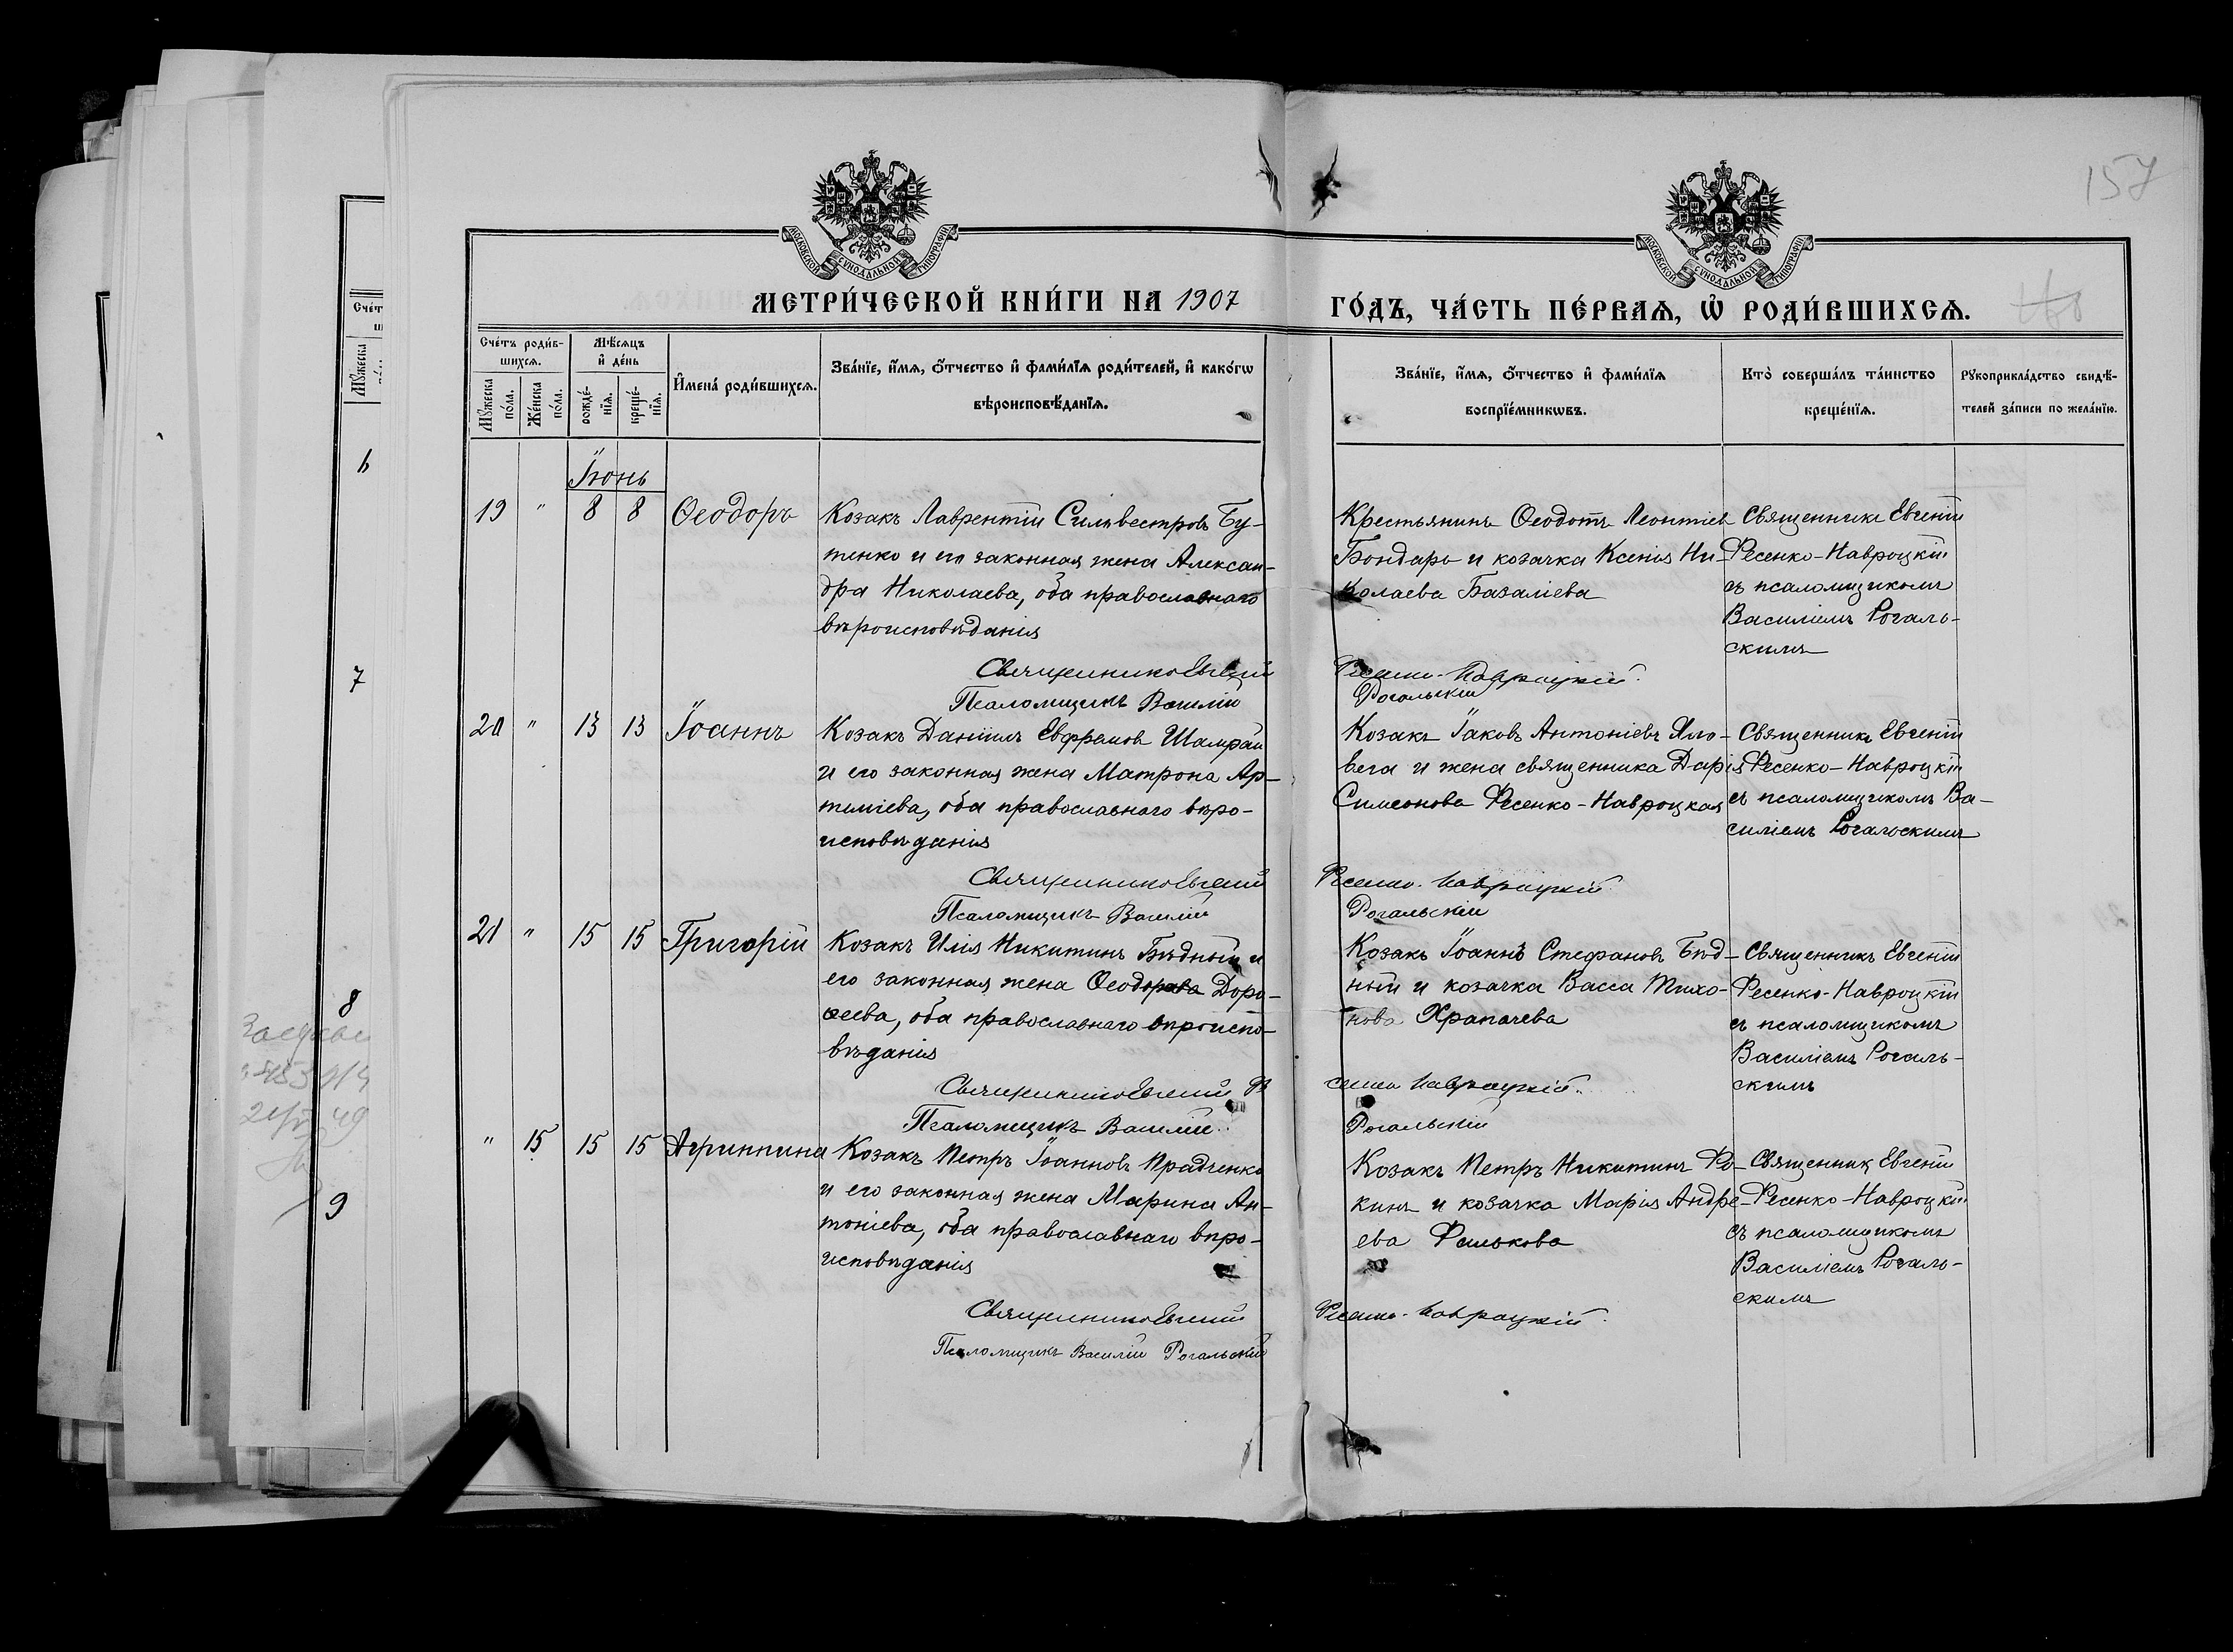 157
МОСКОВСКОЙ СУНОДАЛЬНОЙ ТИПОГРАФІИ
МОСКОВСКОЙ СУНОДАЛЬНОЙ ТИПОГРАФІИ
МЕТРИ́ЧЕСКОЙ КНИ́ГИ НА 1907
ГО́ДЪ, ЧА́СТЬ ПЕ́РВАѦ, Ѡ҆ РОДИ́ВШИХСѦ.
Сче́тъ роди́в-
шихсѧ.
Мꙋ́жеска
по́ла.
Же́нска
по́ла.
Мѣ́сѧцъ
и҆ де́нь
рожде́-
нїѧ.
креще́-
нїѧ.
И҆мена̀ роди́вшихсѧ.
Зва́нїе, и҆́мѧ, ѻ҆́тчество и҆ фами́лїѧ роди́телей, и҆ како́гѡ
вѣроисповѣ́данїѧ.
Зва́нїе, и҆́мѧ, ѻ҆́тчество и҆ фами́лїѧ
воспрїе́мникѡвъ.
Кто̀ соверша́лъ та́инство
креще́нїѧ.
Рꙋкоприкла́дство свидѣ́-
телей за́писи по жела́нїю.
Іюнь
19 " 8 8 Ѳеодоръ
Козакъ Лаврентій Сильвестровъ Бу-
тенко и его законная жена Алексан-
дра Николаева, оба православнаго
вѣроисповѣданія
Крестьянинъ Ѳеодотъ Леонтіев
Бондарь и козачка Ксенія Ни-
колаева Базаліева
Священникъ Евгеній
Фесенко-Навроцкій
съ псаломщикомъ
Василіемъ Рогаль-
скимъ
Священникъ Евгеній Фесенко-Навроцкій.
Псаломщикъ Василій Рогальскій
20 " 13 13 Іоаннъ
Козакъ Даніилъ Евфремовъ Шамрай
и его законная жена Матрона Ар-
теміева, оба православнаго вѣро-
исповѣданія
Козакъ Іаковъ Антоніевъ Яло-
вега и жена священника Дарія
Симеонова Фесенко-Навроцкая
Священникъ Евгеній
Фесенко-Навроцкій
съ псаломщикомъ Ва-
силіемъ Рогальскимъ
Священникъ Евгеній Фесенко-Навроцкій.
Псаломщикъ Василій Рогальскій
21 " 15 15 Григорій
Козакъ Илія Никитинъ Бѣдный и
его законная жена Ѳеодора Доро-
ѳеева, оба православнаго вѣроиспо-
вѣданія
Козакъ Іоаннъ Стефановъ Бѣд-
ный и козачка Васса Тихо-
нова Храпачева
Священникъ Евгеній
Фесенко-Навроцкій
съ псаломщикомъ
Василіемъ Рогаль-
скимъ
Священникъ Евгеній Фесенко Навроцкій.
Псаломщикъ Василій Рогальскій
" 15 15 15 Агриппина
Козакъ Петръ Іоанновъ Прадченко
и его законная жена Марина Ан-
тоніева, оба православнаго вѣро-
исповѣданія
Козакъ Петръ Никитинъ Фо-
кинъ и козачка Марія Андре-
ева Фалькова
Священникъ Евгеній
Фесенко-Навроцкій
съ псаломщикомъ
Василіемъ Рогаль-
скимъ
Священникъ Евгеній Фесенко-Навроцкій.
Псаломщикъ Василій Рогальскій
Сче́т
Мꙋ́жеска
6
7
8
9